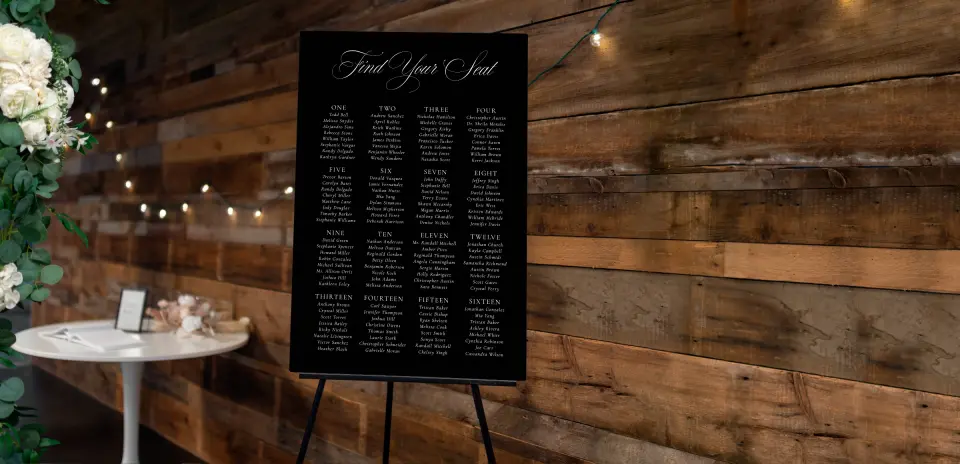 Find Your Seat
ONE
Todd Bell
Melissa Snyder
Alejandro Sims
Rebecca Evans
William Taylor
Stephanie Vargas
Randy Delgado
Kathryn Gardner
TWO
Andrew Sanchez
April Robles
Keith Watkins
Ruth Johnson
James Perkins
Vanessa Mejia
Benjamin Wheeler
Wendy Sanders
THREE
Nicholas Hamilton
Michelle Graves
Gregory Kirby
Gabrielle Moran
Francisco Tucker
Karen Solomon
Andrea Jones
Natasha Scott
FOUR
Christopher Austin
Dr. Sheila Mendez
Gregory Franklin
Erica Davis
Connor Eaton
Pamela Torres
William Brown
Kerri Jackson
FIVE
Trevor Barton
Carolyn Bates
Randy Delgado
Cheryl Miller
Matthew Lane
Jody Douglas
Timothy Barker
Stephanie Williams
SIX
Donald Vasquez
Jamie Fernandez
Nathan Huess
Mia Yang
Dylan Simmons
Melissa Mcpherson
Howard Perez
Deborah Harrison
SEVEN
John Duffy
Stephanie Bell
David Nelson
Terry Evans
Shawn Mccarthy
Megan Harris
Anthony Chandler
Denise Nichols
EIGHT
Jeffrey Singh
Erica Davis
David Johnson
Cynthia Martinez
Eric West
Kristen Edwards
William Mcbride
Jennifer Davis
NINE
David Green
Stephanie Spencer
Howard Miller
Katie Gonzales
Michael Sullivan
Mr. Allison Ortiz
Joshua Hill
Kathleen Foley
TEN
Nathan Anderson
Melissa Duncan
Garrett Rodgers
Betty Olsen
Benjamin Roberson
Nicole Cook
John Adams
Melissa Anderson
ELEVEN
Mr. Randall Mitchell
Amber Price
Reginald Thompson
Angela Cunningham
Sergio Martin
Holly Rodriguez
Christopher Austin
Sara Bowers
TWELVE
Jonathan Church
Kayla Campbell
Austin Schmidt
Samantha Richmond
Austin Brown
Nichole Pierce
Scott Guzes
Crystal Perry
THIRTEEN
Anthony Brown
Crystal Miller
Scott Torres
Jessica Bailey
Ricky Nichols
Natalie Livingston
Victor Sanchez
Heather Mack
FOURTEEN
Carl Sawyer
Jennifer Thompson
Joshua Hill
Christine Owens
Thomas Smith
Laurie Stark
Christopher Schneider
Gabrielle Moran
FIFTEEN
Tristan Baker
Carrie Bishop
Ryan Skelton
Melissa Cook
Scott Smith
Sonya Cruz
Randall Mitchell
Chelsey Singh
SIXTEEN
Jonathan Gonzalez
Mia Yang
Tristan Baker
Ashley Rivera
Michael White
Cynthia Robinson
Joe Carr
Cassandra Wilson